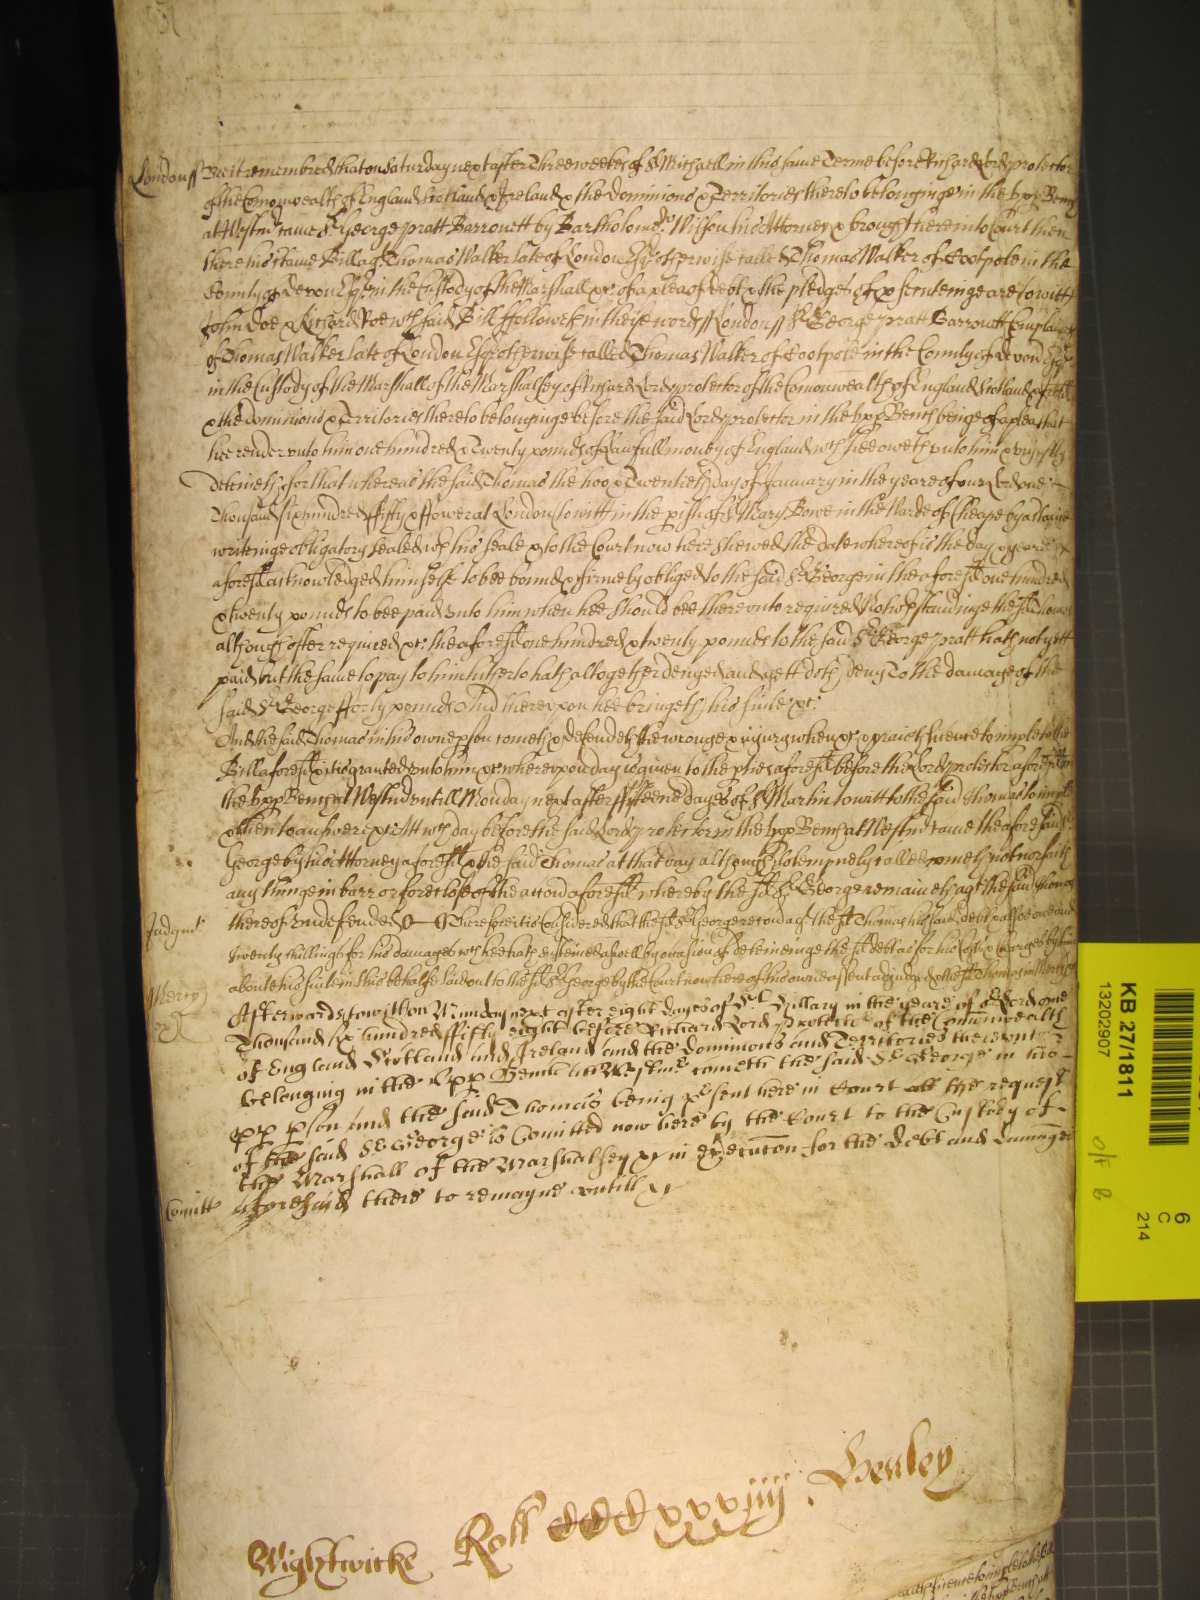 Londonss Bee it remembred that on Saturday next after Three weekes of St Michaell in this same Terme before Richard Lord protector
of the Comonwealth of England Scotland & Ireland & the Dominions & Territories thereto belonginge in the upp Bench
at Westmr came Sr George pratt Barronett by Bartholomew Wilson his Attorney & brought here into Court then
there his certaine Bill agt Thomas Walker late of London Esqr otherwise called Thomas Walker of Cootpole in the
County of Devon Esqr in the Custody of the Marshall &c of a plea of debt & the pledges of prsecuteinge are to witt
John Doe & Richard Roe wch said Bill Followeth in theise words ss Londonss Sr George pratt Barronett Complaines
of Thomas Walker late of London Esqr otherwise called Thomas Walker of Cootpole in the County of Devon Esqr
in the Custody of the Marshall of the Marshalsey of Richard Lord protector of the Comonwealth of England Scotland & Ireld
& the dominions & Territories thereto belonginge before the said Lord protector in the upp Bench beinge of a plea that
hee render unto him one hundred & Twenty pounds of lawfull money of England wch hee oweth unto him & uniustly
deteineth for that whereas the said Thomas the two & Twentieth day of January in the yeare of our Lord one
Thousand six hundred ffifty & ffower at London to witt in the pish of St Mary Bowe in the Warde of Cheape by a certaine
writeinge obligatory sealed wth his seale & to the Court now here shewed the date whereof is the day & yeare
aforesd acknowledged himselfe to bee bound & firmely obliged to the said Sr George in the aforesd one hundred
& twenty pounds to bee paid unto him when hee should bee thereunto required Notwthstandinge the sd Thomas
although often required &c the aforesd one hundred & twenty pounds to the said Sr George pratt hath not yett
paid but the same to pay to him hitherto hath altogether denyed and yett doth deny To the damage of the
said Sr George fforty pounds And thereupon hee bringeth his suite &c
And the said Thomas in his owne pson cometh & defendeth the wronge & iniury when &c & prayeth licence to imple to the
Bill aforesd & it is granted unto him &c whereupon day is given to the pties aforesd before the Lord protector aforesd in
the upp Bench at Westmr untill Monday next after ffifteene dayes of St Martin to witt to the said Thomas to imple
& then to answere &c Att wch day before the said Lord protector in the upp Bench at Westmr came the aforesaid Sr
George by his Attorney aforesd & the said Thomas at that day although solempnely called cometh not nor saith
any thinge in barr or foreclose of the accon aforesd whereby the sd Sr George remaineth agt the said Thomas
Judgmt thereof undefended Therefore it is Considered that the sd Sr George recov agt the sd Thomas his said debt & alsoe one and
twenty shillings for his damages wch hee hath susteined aswell by occasion of deteineinge the sd debt as for his Costs & Charges by him
about his suite in this behalfe laid out to the sd Sr George by the Court now here of his owne assent adiudged & the sd Thomas in Mercy &c
Mercy
Afterwards to witt on Munday next after eight dayes of St Hillary in the yeare of or Lord one
Thousand six hundred ffifty eight before Richard Lord Protector of the Comonwealth
of England Scotland and Ireland and the Dominions and Territories thereunto
belonging in the Upp Bench att Westmr cometh the said Sr George in his
pp pson and the said Thomas being prsent here in Court att the request
of the said Sr George is Comitted now here by the Court to the Custody of
the Marshall of the Marshalsey &c in Execution for the debt and damages
Comitt aforesaid there to remayne untill &c
Wightwicke Roll CCCxxxiiij. Henley
KB 27/1811
13202907
O/F B
6
C
214